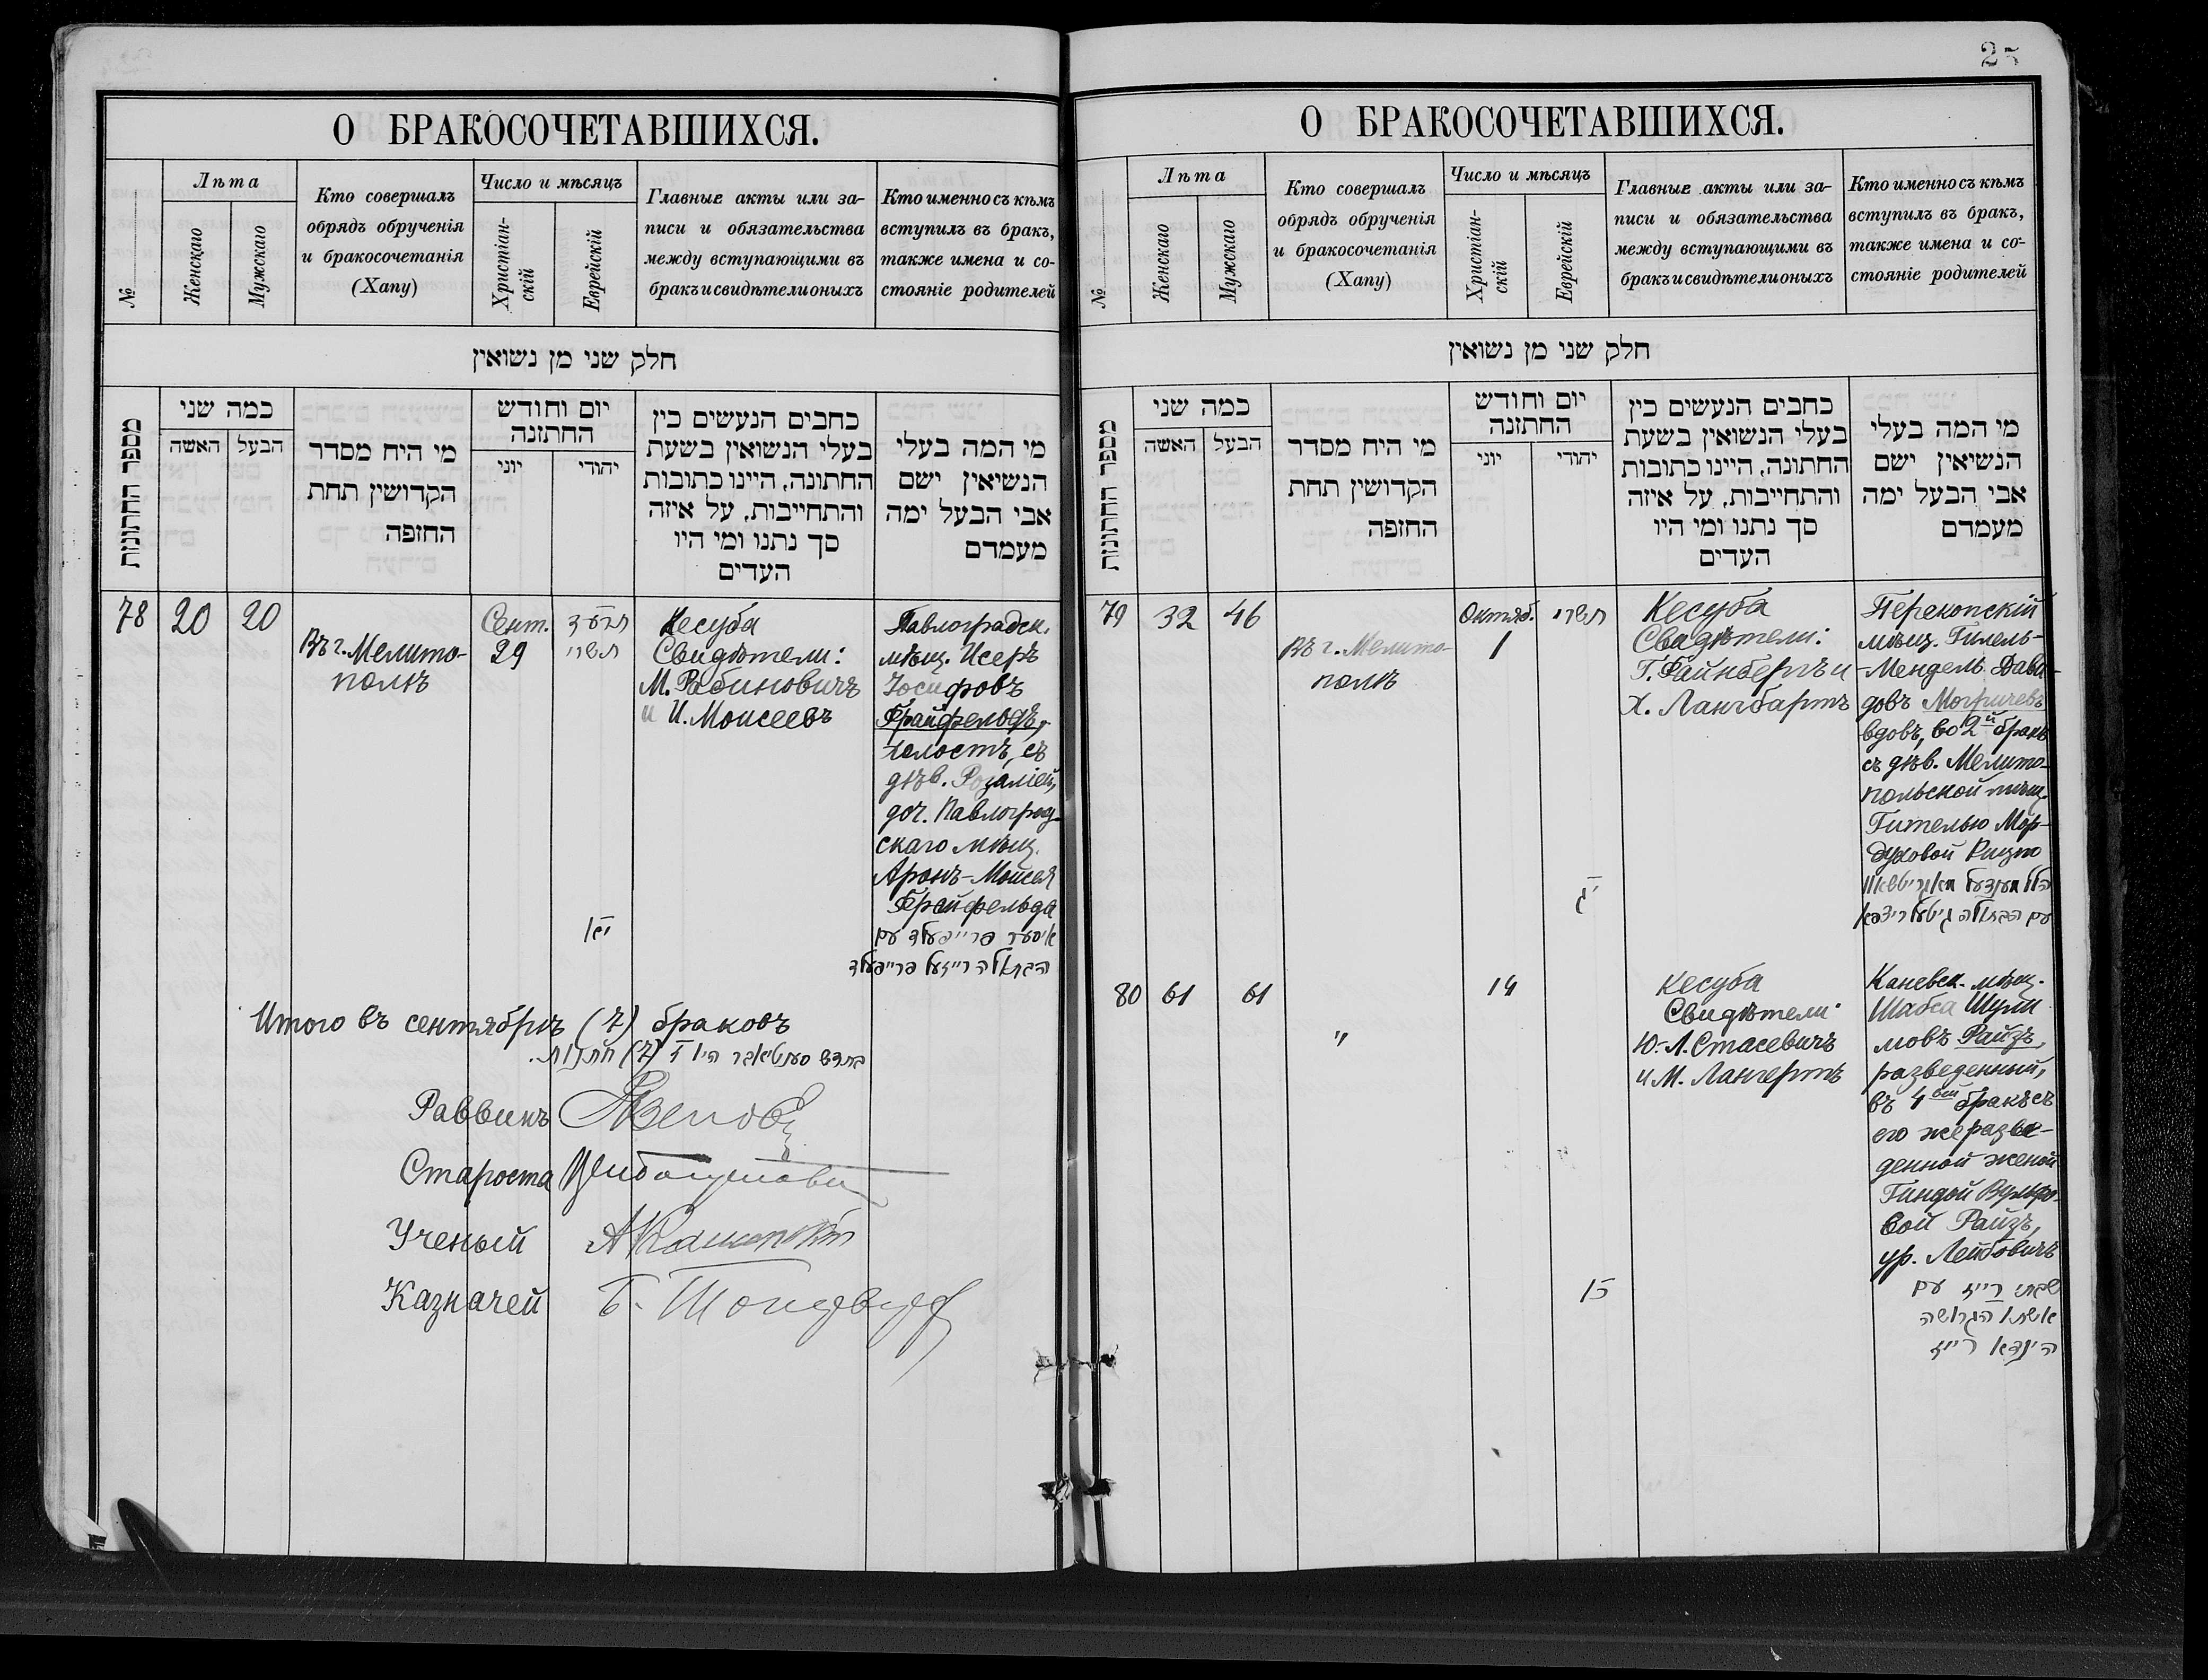 25
О БРАКОСОЧЕТАВШИХСЯ.
№
Лѣта
Женскаго
Мужскаго
Кто совершалъ
обрядъ обрученія
и бракосочетанія
(Хапу)
Число и мѣсяцъ
Христіан-
скій
Еврейскій
Главные акты или за-
писи и обязательства
между вступающими въ
бракъ и свидѣтели оныхъ
Кто именно съ кѣмъ
вступилъ въ бракъ,
также имена и со-
стояніе родителей
חלק שני מן נשואין
מספר החתונות
כמה שני
האשה
הבעל
מי היח מסדר
הקדושין תחת
החזפה
יום וחודש
החתזנה
יוני
יהודי
כחבים הנעשים כין
בעלי הנשואין בשעת
החתונה, היינו כתובות
והתחייבות, על איזה
סך נתנו ומי היו
העדים
מי המה בעלי
הנשיאין ישם
אבי הבעל ימה
מעמדם
78
20
20
Въ г. Мелито-
полѣ
Сент.
29
תרע״ד
תשרי
י״א
Кесуба
Свидѣтели:
М. Рабиновичъ
и И. Моисеевъ
Павлоградск.
мѣщ. Исеръ
Іосифовъ
Фрайфельдъ,
холостъ, съ
дѣв. Розаліей,
доч. Павлоград-
скаго мѣщ.
Аронъ-Мойсея
Фрайфельда
איסער פרייפעלד עם
הבתולה רייזעל פרייפעלד
Итого въ сентябрѣ (7) браковъ
בחדש סעפטיאבר היו ז׳ (7) חתנות.
Раввинъ
Староста
Ученый
Казначей
О БРАКОСОЧЕТАВШИХСЯ.
№
Лѣта
Женскаго
Мужскаго
Кто совершалъ
обрядъ обрученія
и бракосочетанія
(Хапу)
Число и мѣсяцъ
Христіан-
скій
Еврейскій
Главные акты или за-
писи и обязательства
между вступающими въ
бракъ и свидѣтели оныхъ
Кто именно съ кѣмъ
вступилъ въ бракъ,
также имена и со-
стояніе родителей
חלק שני מן נשואין
מספר החתונות
כמה שני
האשה
הבעל
מי היח מסדר
הקדושין תחת
החזפה
יום וחודש
החתזנה
יוני
יהודי
כחבים הנעשים כין
בעלי הנשואין בשעת
החתונה, היינו כתובות
והתחייבות, על איזה
סך נתנו ומי היו
העדים
מי המה בעלי
הנשיאין ישם
אבי הבעל ימה
מעמדם
79
32
46
Въ г. Мелито-
полѣ
Октяб.
1
תשרי
י״ג
Кесуба
Свидѣтели:
Г. Файнбергъ и
Х. Лангбартъ
Перекопскій
мѣщ. Гилель-
-Мендель Дави-
довъ Могричевъ
вдовъ, во 2й бракъ
съ дѣв. Мелито-
польской мѣщ.
Гителью Мор-
духовой
הלל מענדעל
עם הבתולה גיטעל
80
61
61
"
14
Кесуба
Свидѣтели:
Ю.-Л. Стасевичъ
и М. Лангертъ
Каневск. мѣщ.
Шабса Шули
мовъ Райзъ,
разведенный,
въ 4ый бракъ съ
его же разве-
денной женой
Гиндой Вульфо-
вой Райзъ,
ур. Лейбовичъ
שבתי רייז עם
אשתו הגרושה
הינדא רייז